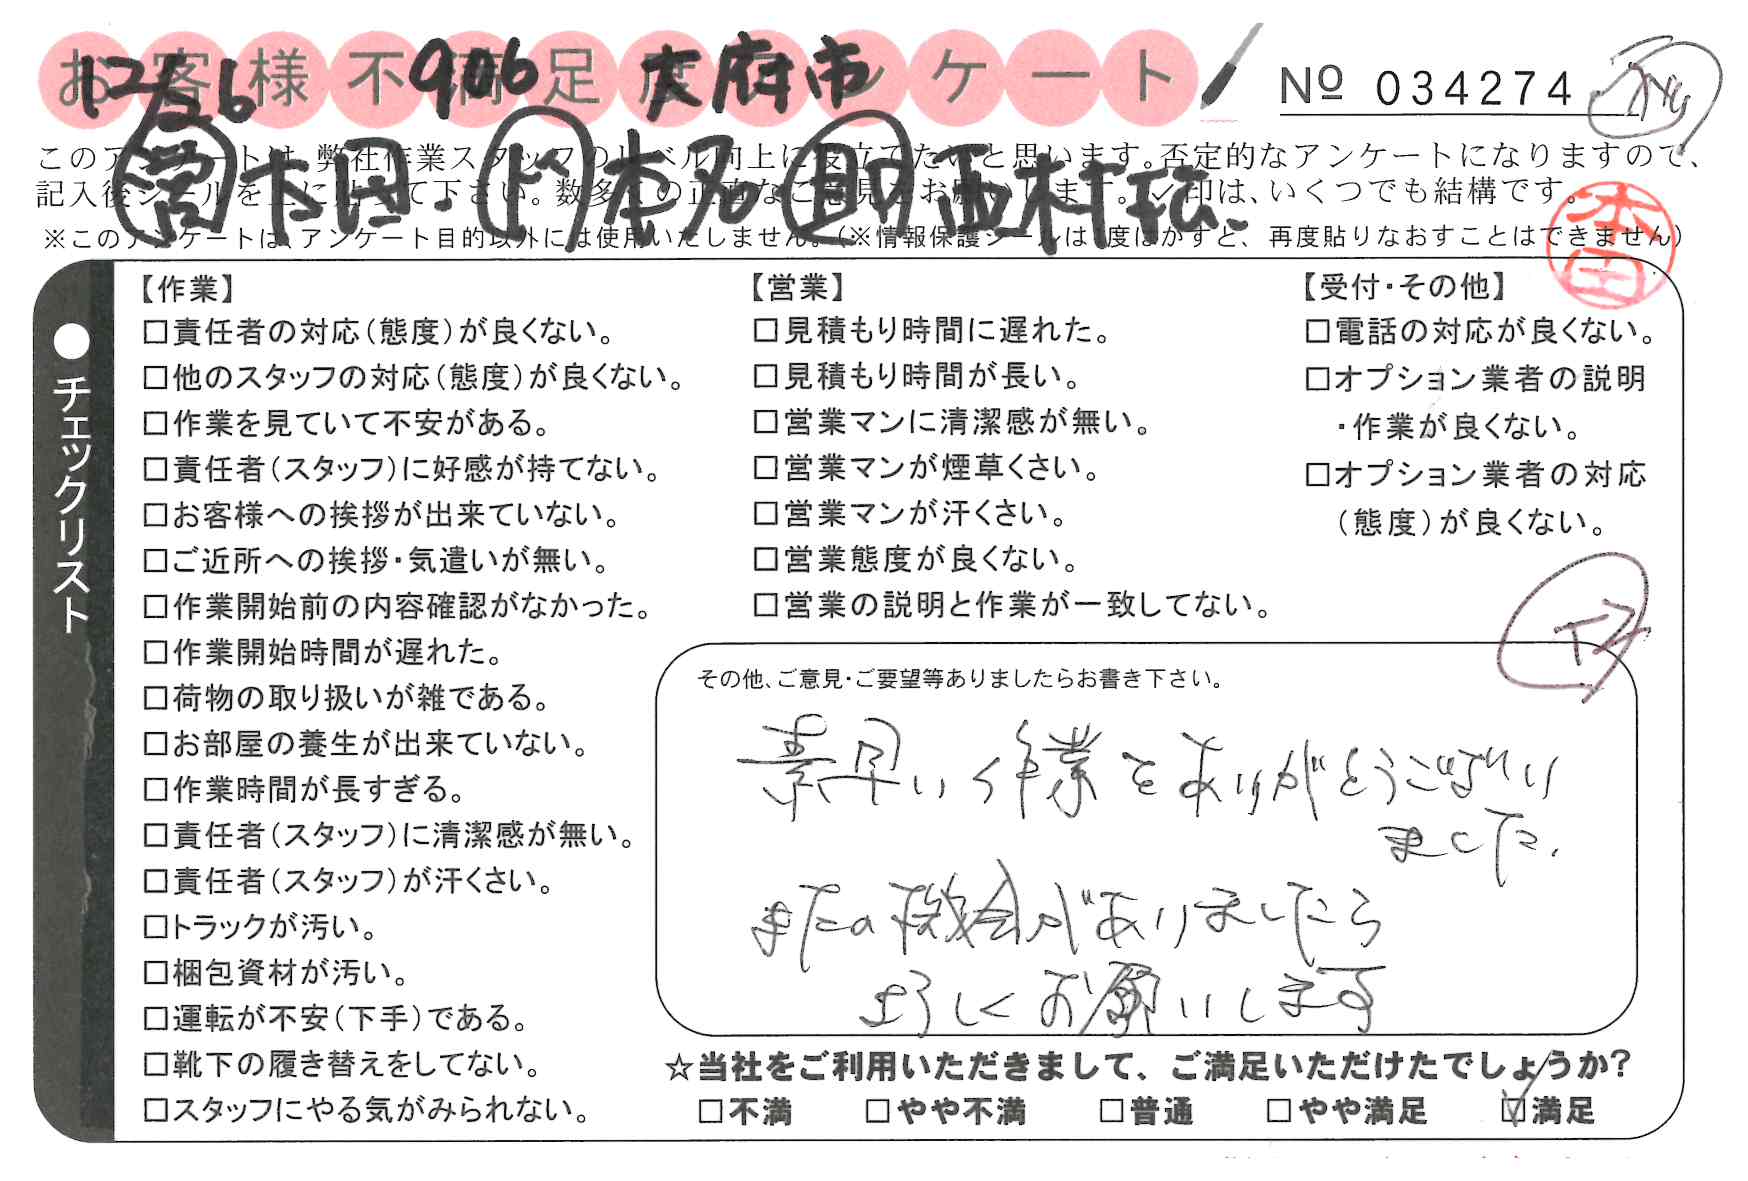 お客様不満足度アンケート
№ 034274
12/26 906 大府市
このアンケートは、弊社作業スタッフのレベル向上に役立てたいと思います。否定的なアンケートになりますので、
記入後シールを上に貼って下さい。数多くの正直なご意見をお願いします。✓印は、いくつでも結構です。
※このアンケートは、アンケート目的以外には使用いたしません。(※情報保護シールは1度はがすと、再度貼りなおすことはできません)
本田
●チェックリスト
【作業】
□責任者の対応(態度)が良くない。
□他のスタッフの対応(態度)が良くない。
□作業を見ていて不安がある。
□責任者(スタッフ)に好感が持てない。
□お客様への挨拶が出来ていない。
□ご近所への挨拶・気遣いが無い。
□作業開始前の内容確認がなかった。
□作業開始時間が遅れた。
□荷物の取り扱いが雑である。
□お部屋の養生が出来ていない。
□作業時間が長すぎる。
□責任者(スタッフ)に清潔感が無い。
□責任者(スタッフ)が汗くさい。
□トラックが汚い。
□梱包資材が汚い。
□運転が不安(下手)である。
□靴下の履き替えをしてない。
□スタッフにやる気がみられない。
【営業】
□見積もり時間に遅れた。
□見積もり時間が長い。
□営業マンに清潔感が無い。
□営業マンが煙草くさい。
□営業マンが汗くさい。
□営業態度が良くない。
□営業の説明と作業が一致してない。
【受付・その他】
□電話の対応が良くない。
□オプション業者の説明
・作業が良くない。
□オプション業者の対応
(態度)が良くない。
その他、ご意見・ご要望等ありましたらお書き下さい。
素早い作業をありがとうござい
ました。
またの機会がありましたら
よろしくお願いします
☆当社をご利用いただきまして、ご満足いただけたでしょうか?
□不満 □やや不満 □普通 □やや満足 ☑満足